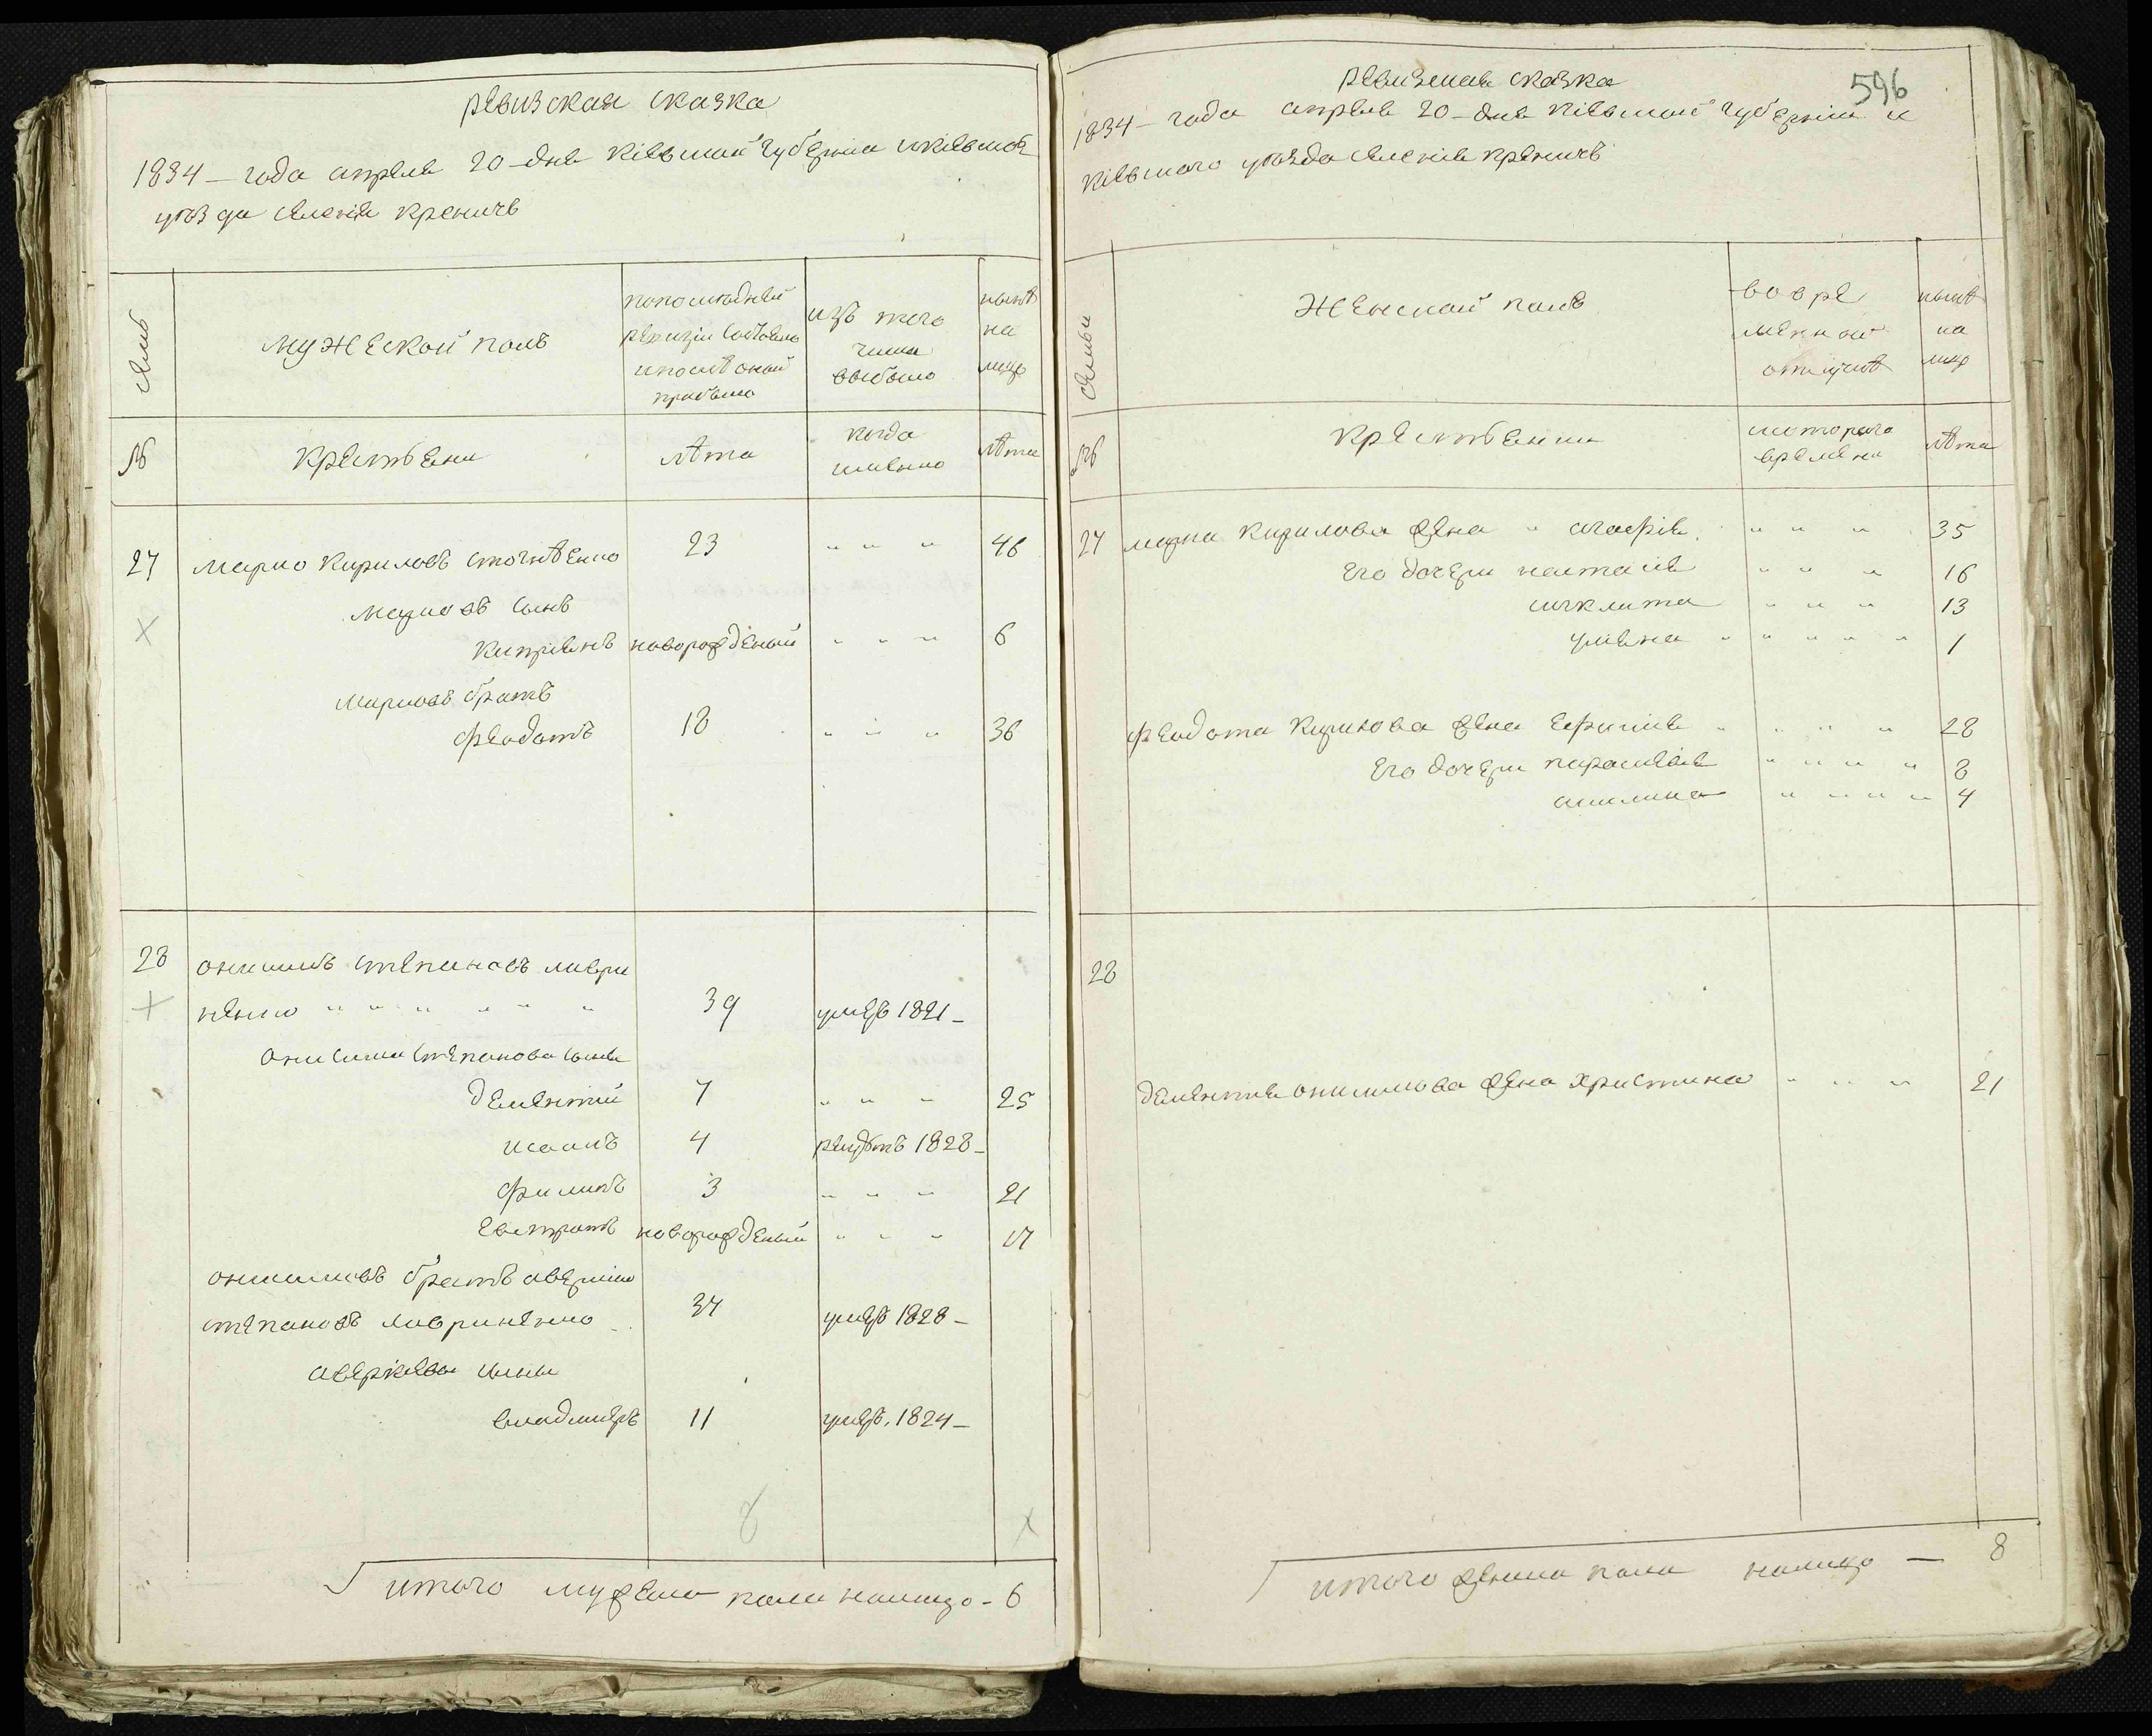 ревизская сказка
1834 – года апреля 20 – дня Кіевской губерніи и Кіевскаго
уѣзда селенія креничь
семьи
мужеской полъ
попоследней
ревизіи состояло
и после оной
прибыло
изъ того
числа
выбыло
ныне
на
лицо
№
крестьени
лѣта
когда
именно
лѣта
27
марко Кириловъ
23
" " "
46
марковъ сынъ
Кипріянъ новорожденый " " " 6
марковъ братъ
феодотъ 18 " " " 36
28
онисимъ степановъ лаври
ненко " " " " " " 39 умеръ 1821 –
онисима степанова сыни
дементій 7 " " " 25
исакъ 4 рекрутъ 1828 –
филипъ 3 " " " 21
евстратъ новорожденый " " " 17
онисимовъ братъ аверкій
степановъ лавриненко 37 умеръ 1828 –
аверкіевы сыни
владимиръ 11 умеръ 1824 –
итого мужеска пола налицо – 6
596
ревизская сказка
1834 – года апреля 20 – дня Кіевской губерніи и
Кіевского уѣзда селенія креничь
семьи
Женской полъ
вовре
менной
отлучке
ныне
на
лицо
№
крестьенки
скоторого
времени
лѣта
27 марка Кирилова жена " агафія " " " 35
его дочери наталія " " " 16
миклита " " " 13
уляна " " " " " 1
феодота Кирилова жена Ефимія " " " " 28
его дочери параскевія " " " " 8
акилина " " " " 4
28
дементія онисимова жена христина " " " 21
итого женска пола налицо – 8